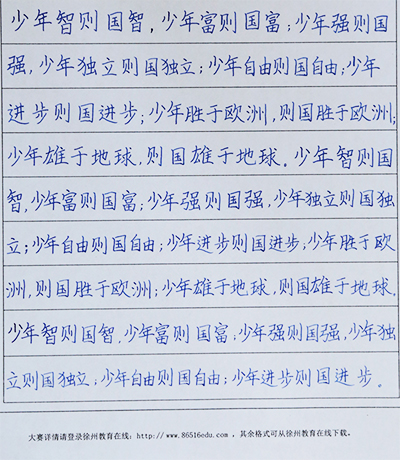 少年智则国智,少年富则国富;少年强则国
强,少年独立则国独立;少年自由则国自由;少年
进步则国进步;少年胜于欧洲,则国胜于欧洲;
少年雄于地球,则国雄于地球。少年智则国
智,少年富则国富;少年强则国强,少年独立则国独
立;少年自由则国自由;少年进步则国进步;少年胜于欧
洲,则国胜于欧洲;少年雄于地球,则国雄于地球。
少年智则国智,少年富则国富;少年强则国强,少年独
立则国独立;少年自由则国自由;少年进步则国进步。
大赛详情请登录徐州教育在线:http://www.86516edu.com ,其余格式可从徐州教育在线下载。